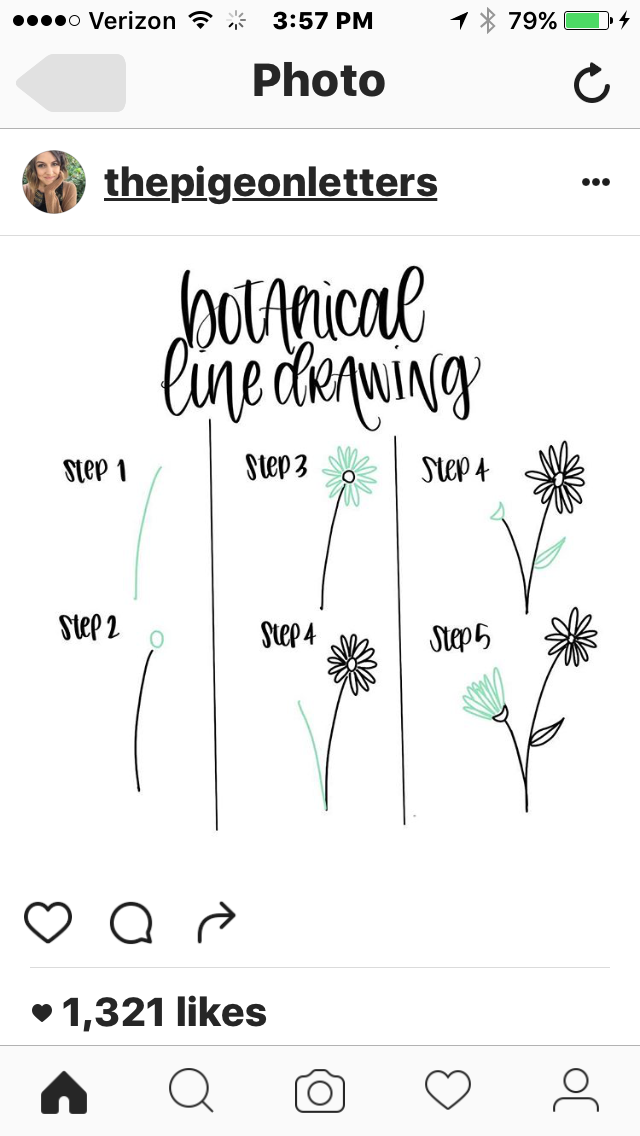 Verizon 3:57 PM 79%
Photo
thepigeonletters
botanical
line drawing
Step 1
Step 2
Step 3
Step 4
Step 4
Step 5
1,321 likes